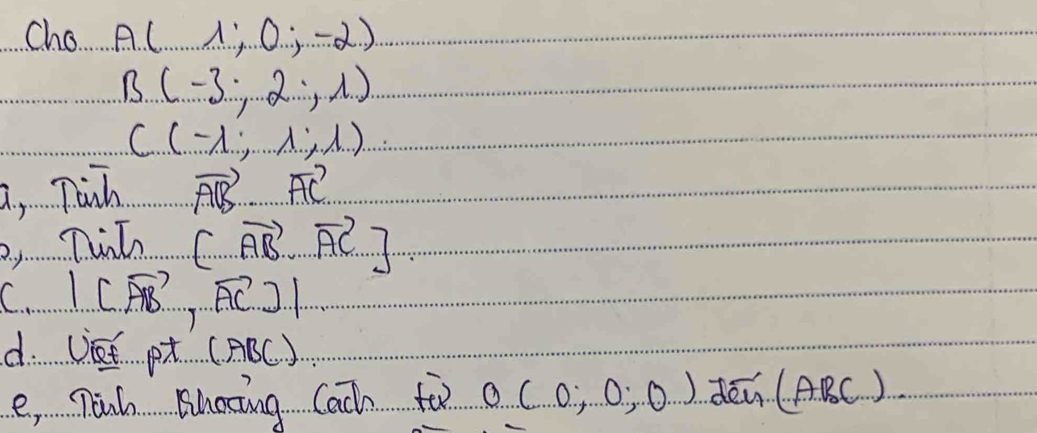 Cho A( 1; 0; -2)
B (-3; 2; 1)
C (-1; 1; 1).
a, Tính \overrightarrow{AB} \overrightarrow{AC}
b, Tính [ \overrightarrow{AB} . \overrightarrow{AC} ].
C. | [ \overrightarrow{AB} , \overrightarrow{AC} ] |
d. Viết pt (ABC).
e, Tính khoảng cách từ O ( 0; 0; 0) đến (ABC).